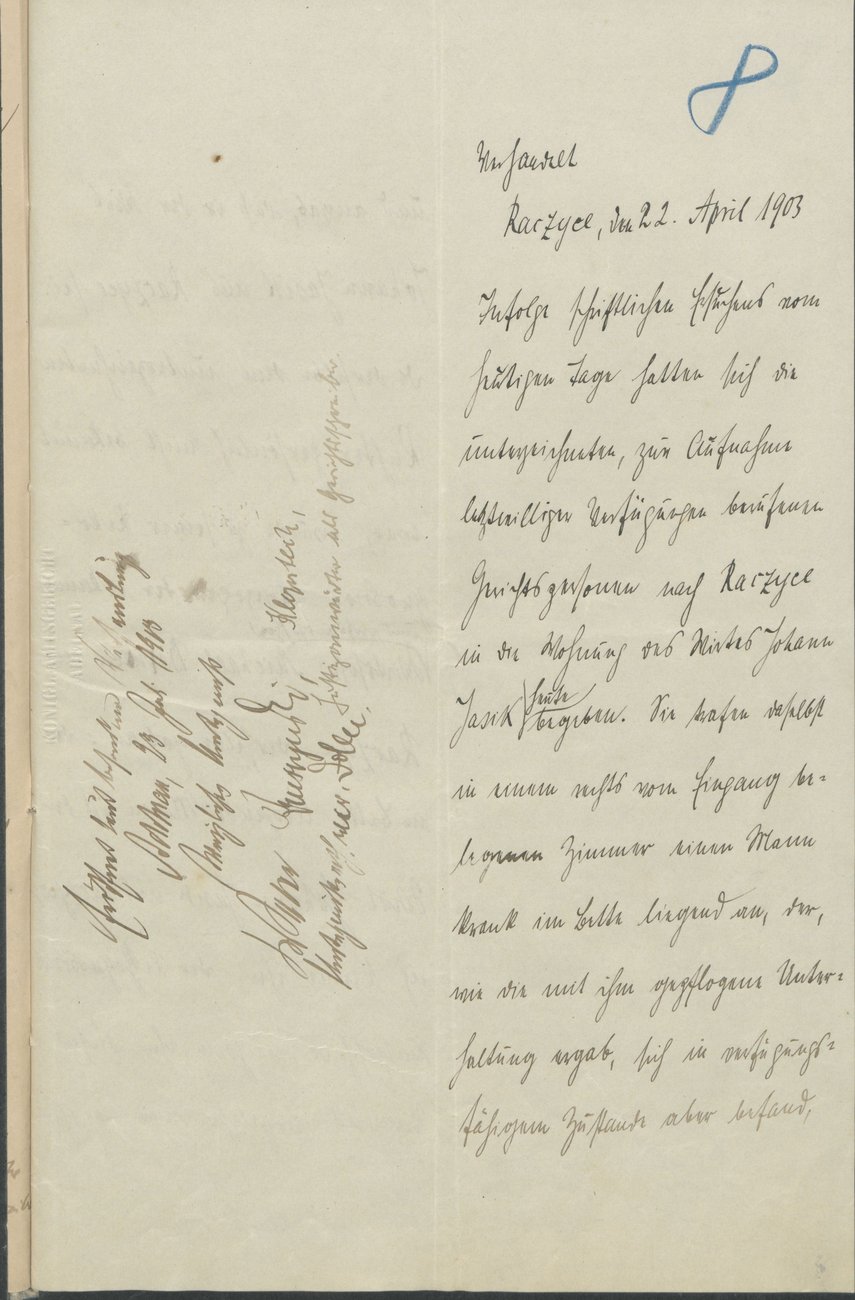 8
Verhandelt
Raczyce, den 22. April 1903
Infolge schriftlichen Ersuchens vom
heutigen Tage hatten sich die
unterzeichneten, zur Aufnahme
letztwilliger Verfügungen berufenen
Gerichtspersonen nach Raczyce
in die Wohnung des Wirtes Johann
Jasik heute begeben. Sie trafen daselbst
in einem rechts vom Eingang be=
legenen Zimmer einen Mann
krank im Bette liegend an, der,
wie die mit ihm gepflogene Unter=
haltung ergab, sich in verfügungs=
fähigem Zustande aber befand,
Eröffnet laut besonderer Verhandlung
23 Juli 1903
Königliches Amtsgericht
als Gerichtsschreiber
KÖNIGL. AMTSGERICHT
ADELNAU